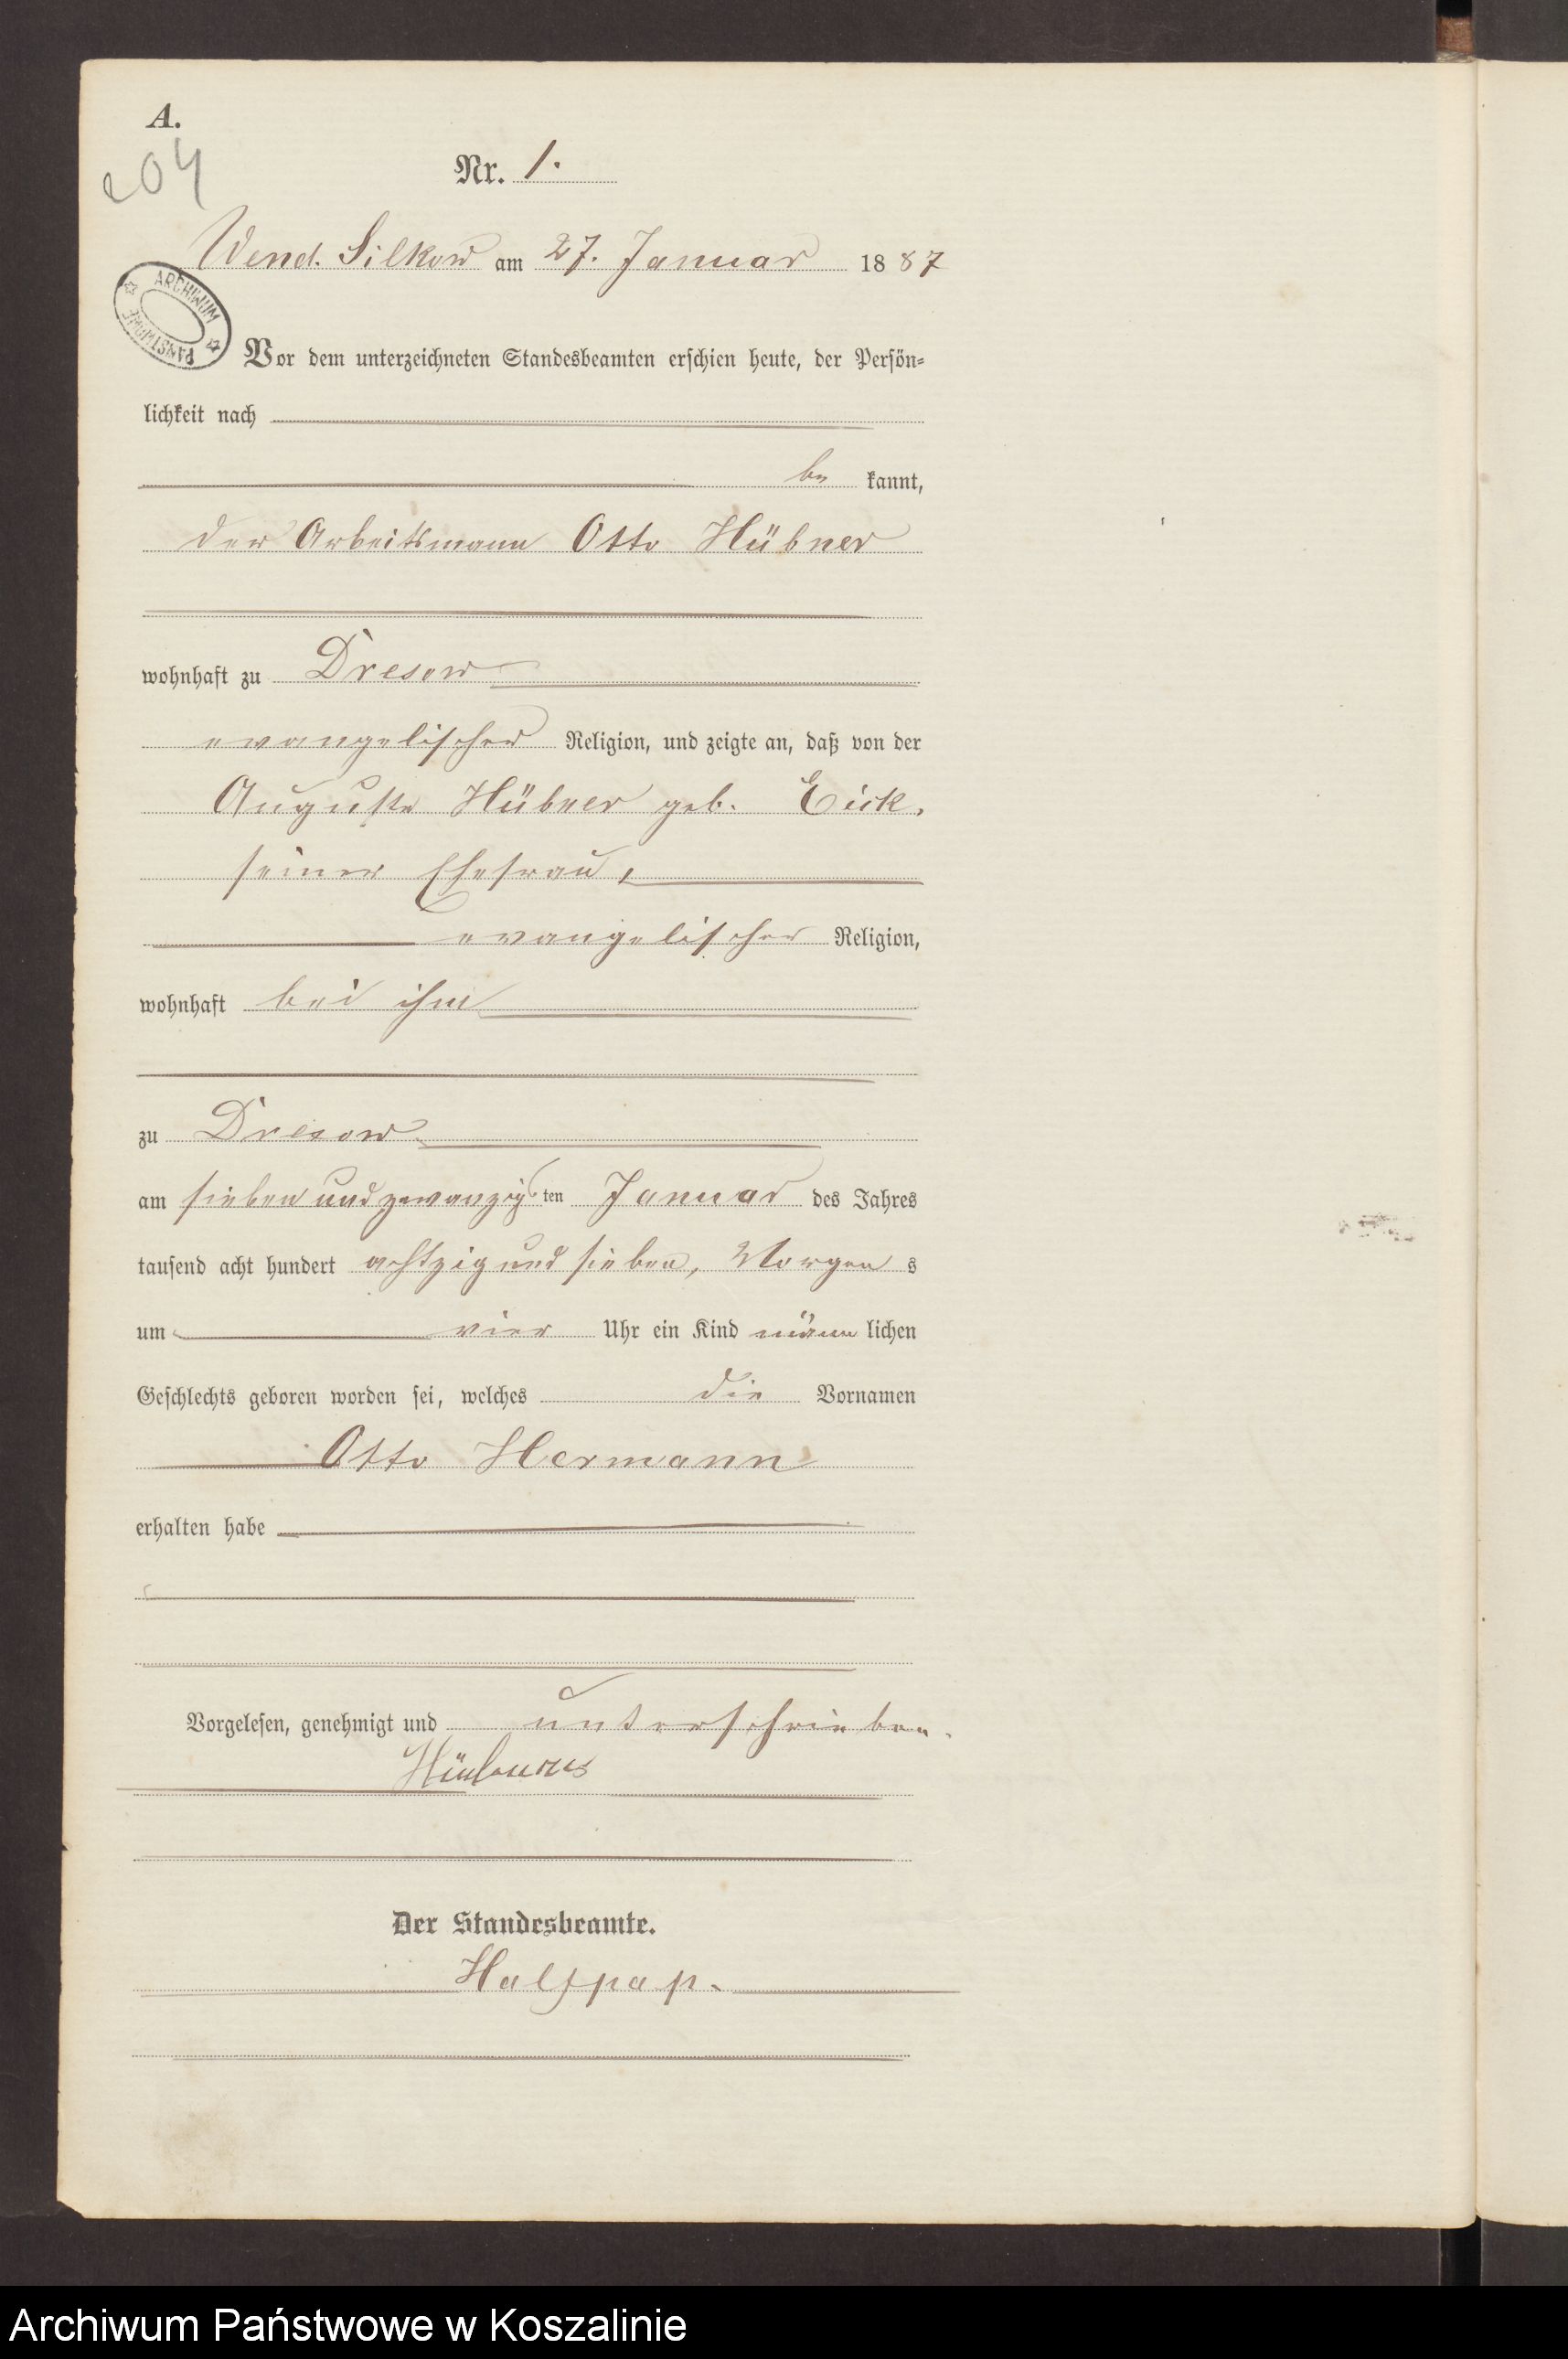 A.
204
Nr. 1.
Wend. Silkow am 27. Januar 1887
ARCHIWUM PAŃSTWOWE
Vor dem unterzeichneten Standesbeamten erschien heute, der Persön=
lichkeit nach
be kannt,
der Arbeitsmann Otto Hübner
wohnhaft zu Dresow
evangelischer Religion, und zeigte an, daß von der
Auguste Hübner geb. Eick,
seiner Ehefrau,
evangelischer Religion,
wohnhaft bei ihm
zu Dresow
am sieben und zwanzigsten Januar des Jahres
tausend acht hundert achtzig und sieben, Morgens
um vier Uhr ein Kind männlichen
Geschlechts geboren worden sei, welches die Vornamen
Otto Hermann
erhalten habe
Vorgelesen, genehmigt und unterschrieben.
Der Standesbeamte.
Halfpap.
Archiwum Państwowe w Koszalinie